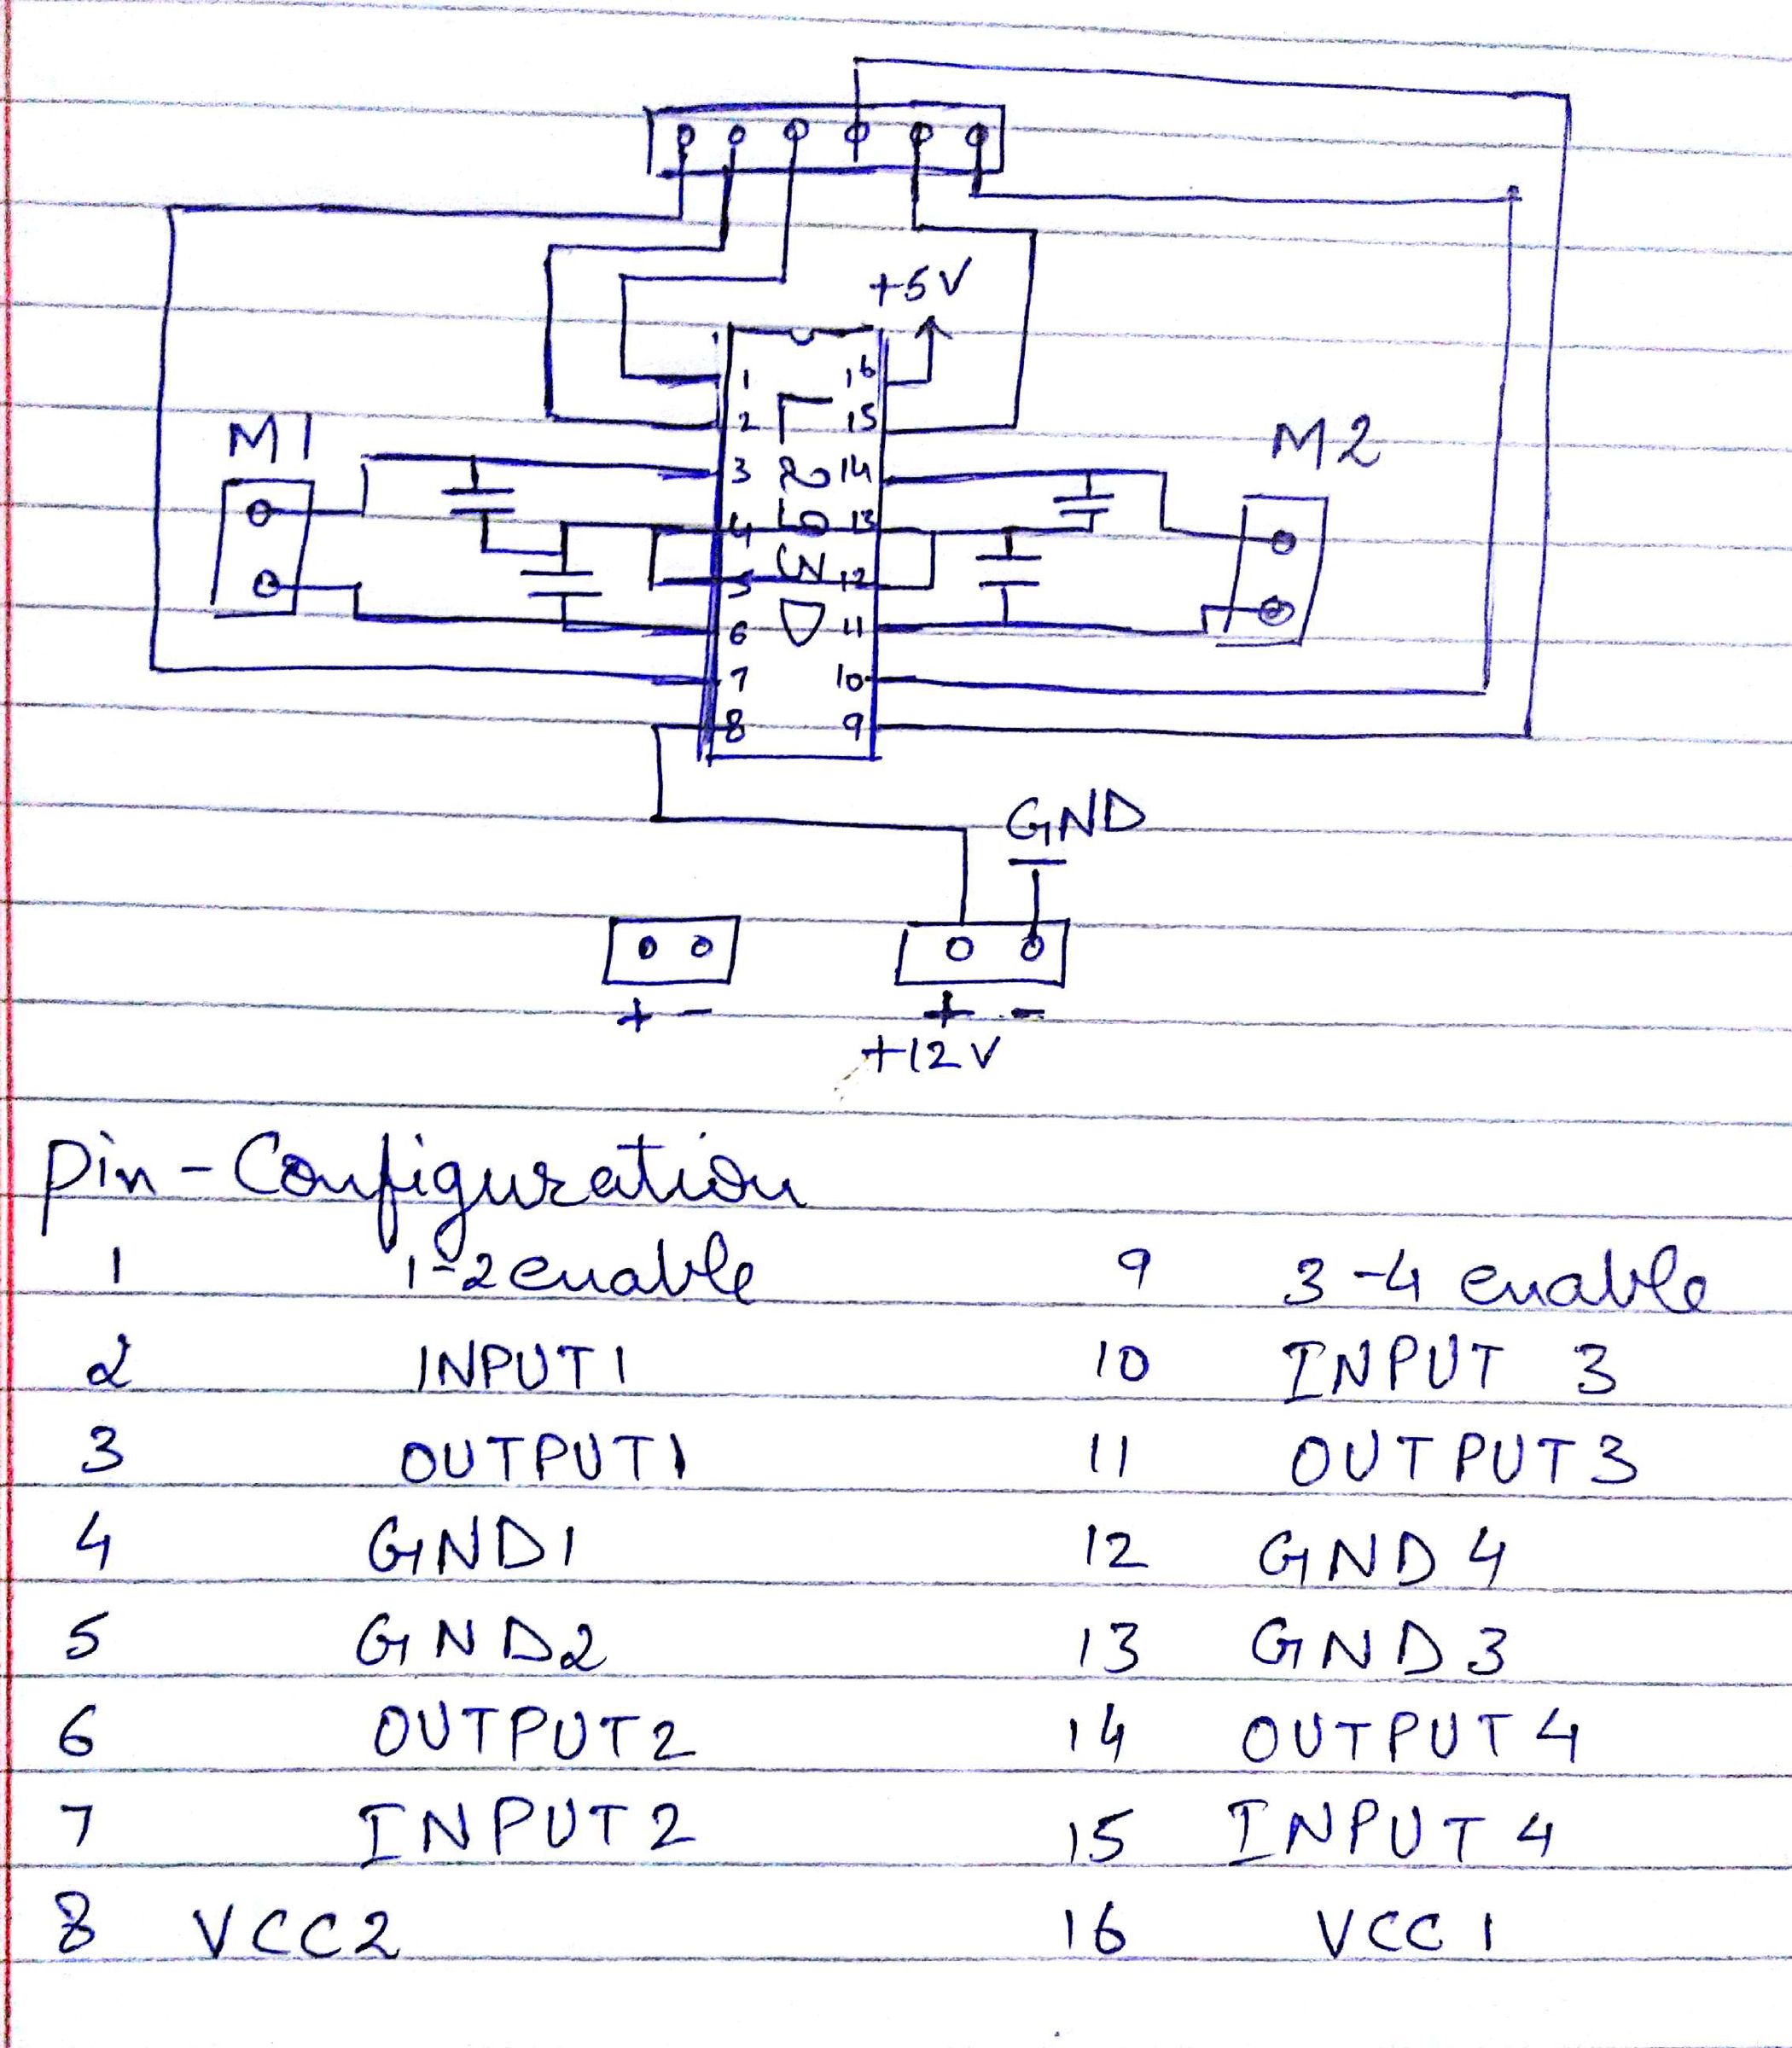 +5V
1 16
2 15
M1 M2
3 14
4 13
5 12
6 11
7 10
8 9
L293D
GND
+ - + -
+12V
Pin-Configuration
1 1-2 enable 9 3-4 enable
2 INPUT1 10 INPUT 3
3 OUTPUT1 11 OUTPUT3
4 GND1 12 GND4
5 GND2 13 GND3
6 OUTPUT2 14 OUTPUT4
7 INPUT2 15 INPUT4
8 VCC2 16 VCC1